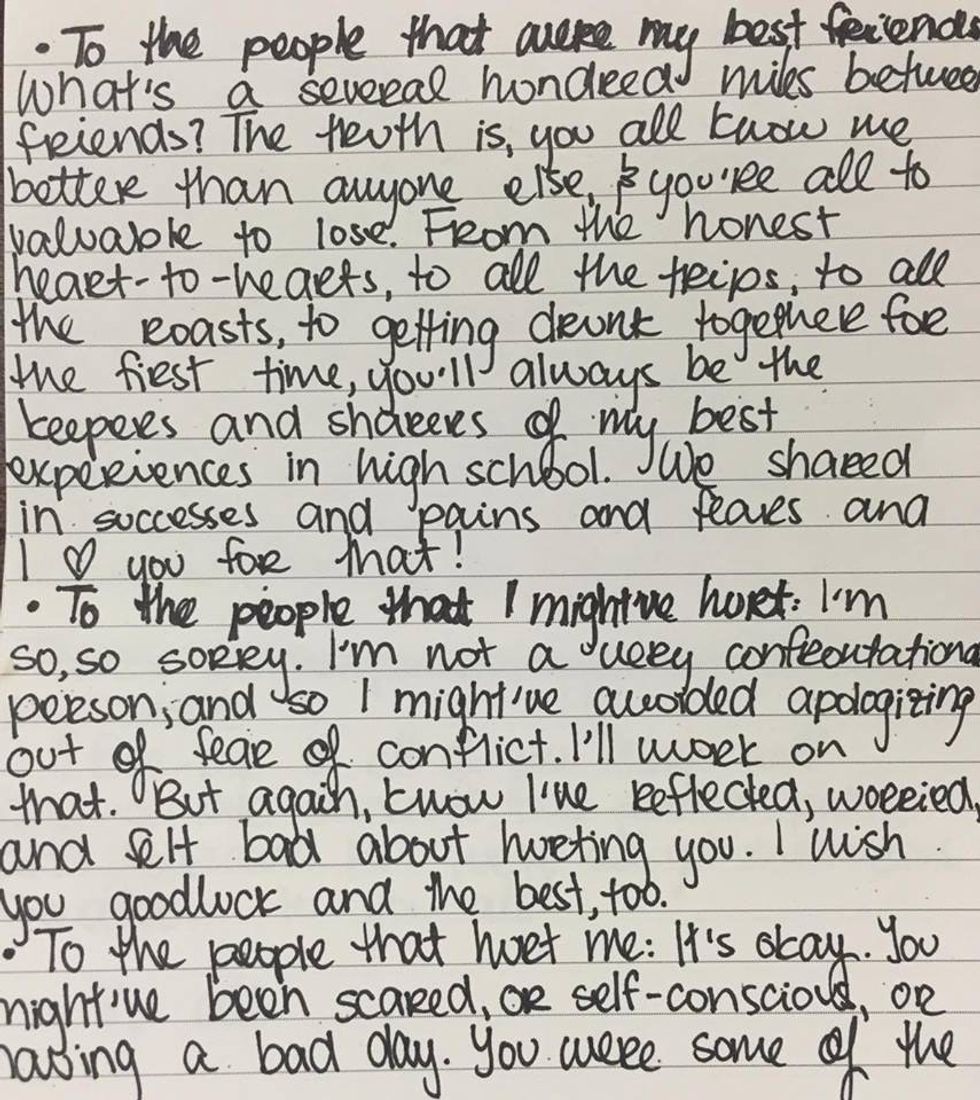 • To the people that were my best friends
What's a several hundred miles between
friends? The truth is, you all know me
better than anyone else, & you're all to
valuable to lose. From the honest
heart-to-hearts, to all the trips, to all
the roasts, to getting drunk together for
the first time, you'll always be the
keepers and sharers of my best
experiences in high school. We shared
in successes and pains and fears and
I ♡ you for that!
• To the people that I might've hurt: I'm
so, so sorry. I'm not a very confrontational
person, and so I might've avoided apologizing
out of fear of conflict. I'll work on
that. But again, know I've reflected, worried,
and felt bad about hurting you. I wish
you goodluck and the best, too.
• To the people that hurt me: It's okay. You
might've been scared, or self-conscious, or
having a bad day. You were some of the